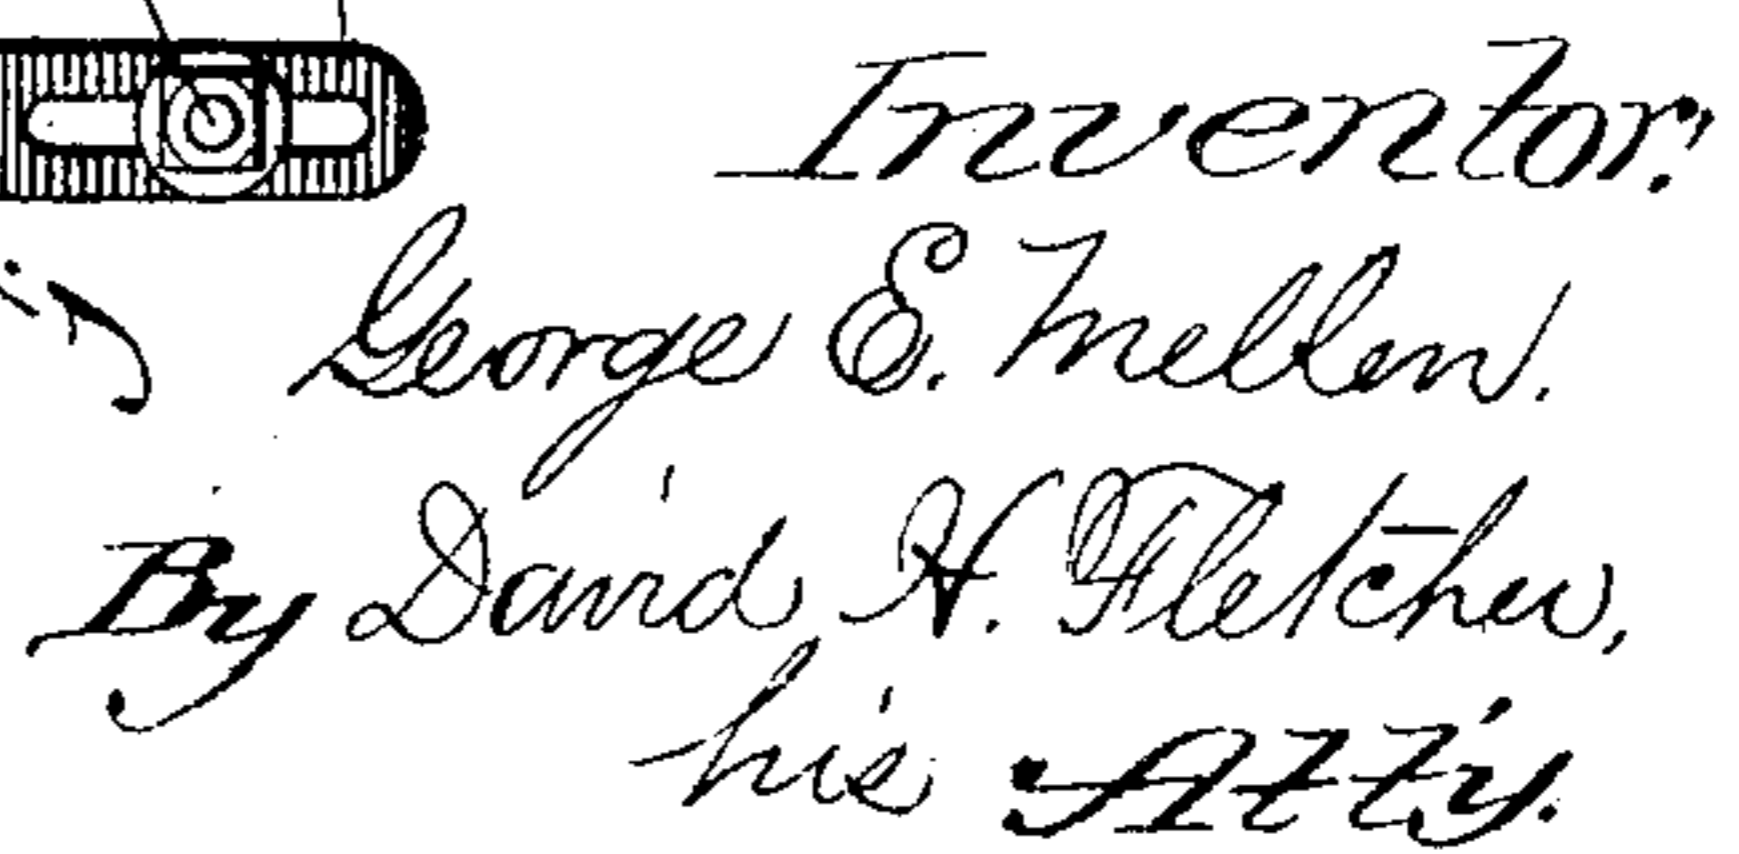 Inventor:
George E. Mellen.
By David H. Fletcher,
his Att'y.